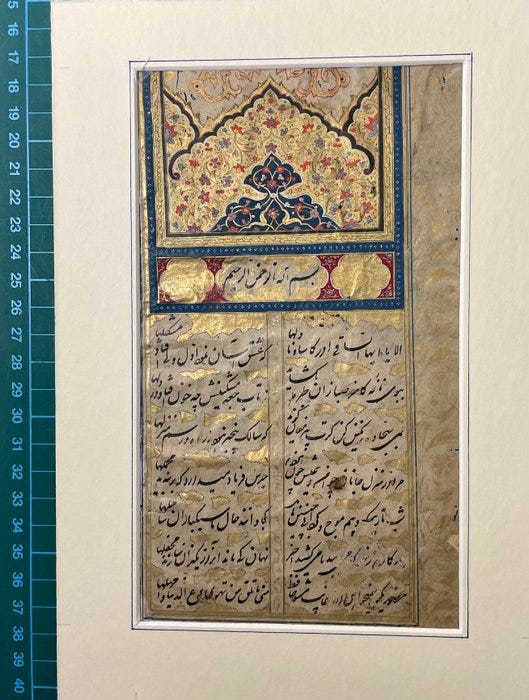 15
16
17
18
19
20
21
22
23
24
25
26
27
28
29
30
31
32
33
34
35
36
37
38
39
40
بسم الله الرحمن الرحیم
الا یا ایها الساقی ادر کاسا و ناولها که عشق آسان نمود اول ولی افتاد مشکلها
ببوی نافه کاخر صبا زان طره بگشاید ز تاب جعد مشکینش چه خون افتاد در دلها
بمی سجاده رنگین کن گرت پیر مغان گوید که سالک بیخبر نبود ز راه و رسم منزلها
مرا در منزل جانان چه امن و عیش چون هر دم جرس فریاد میدارد که بربندید محملها
شب تاریک و بیم موج و گردابی چنین هایل کجا دانند حال ما سبکباران ساحلها
همه کارم ز خود کامی ببدنامی کشید آخر نهان کی ماند آن رازی کزو سازند محفلها
حضوری گر همی خواهی ازو غایب مشو حافظ متی ما تلق من تهوی دع الدنیا و اهملها